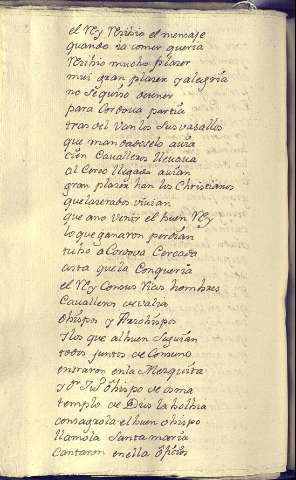 el Rey resibio el mensaje
quando ia comer queria
resibio mucho plazer
mui gran plazer y alegria
no se quiso detener
para Cordova partia
tras del van los sus vasallos
que mandadoselo avia
cien Cavalleros llevava
al Cerco llegado avian
gran plazer han los Christianos
que lazerados vivian
que a no venir el buen Rey
lo que ganaron perdian
tubo a Cordova Cercada
asta que la Conqueria
el Rey Con sus ricos hombres
Cavalleros de valia
Obispos y Arzobispos
y los que al buen seguian
todos juntos de Comuno
entraron en la Mezquita
y Dn Ju° Obispo de osma
templo de Dios la bolbia
consagrola el buen obispo
llamola Santa maria
Cantaron en ella Oficios